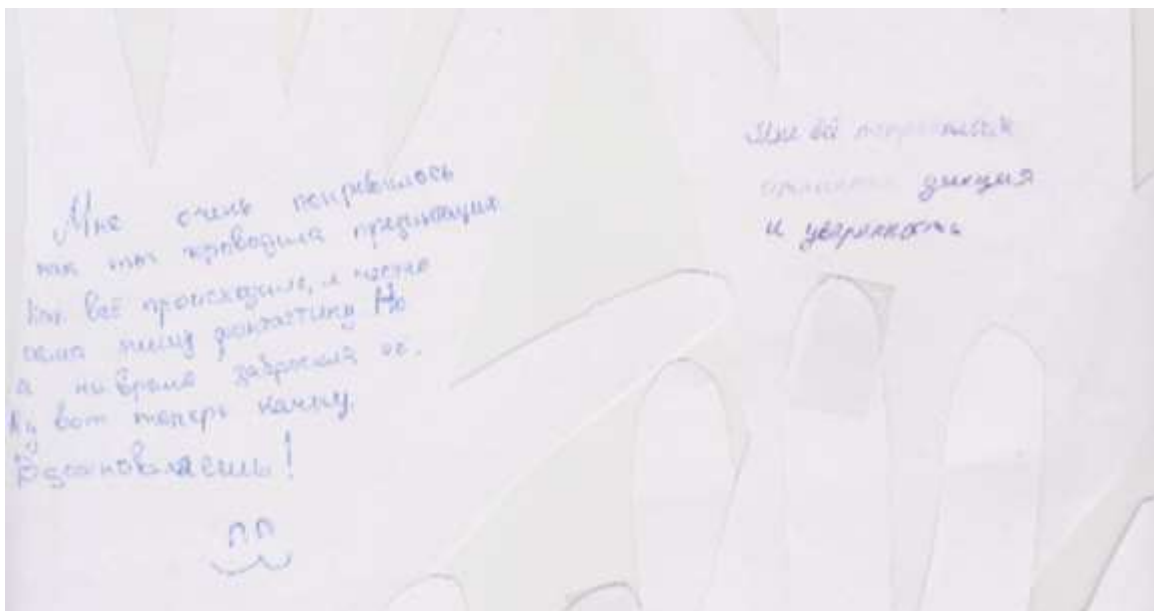 Мне очень понравилось
как ты проводила презентацию
Как всё происходило, я часто
сама пишу фантастику Но
а на время забросила ее.
Ну вот теперь начну.
Вдохновляешь!
Мне
дикция
и уверенность